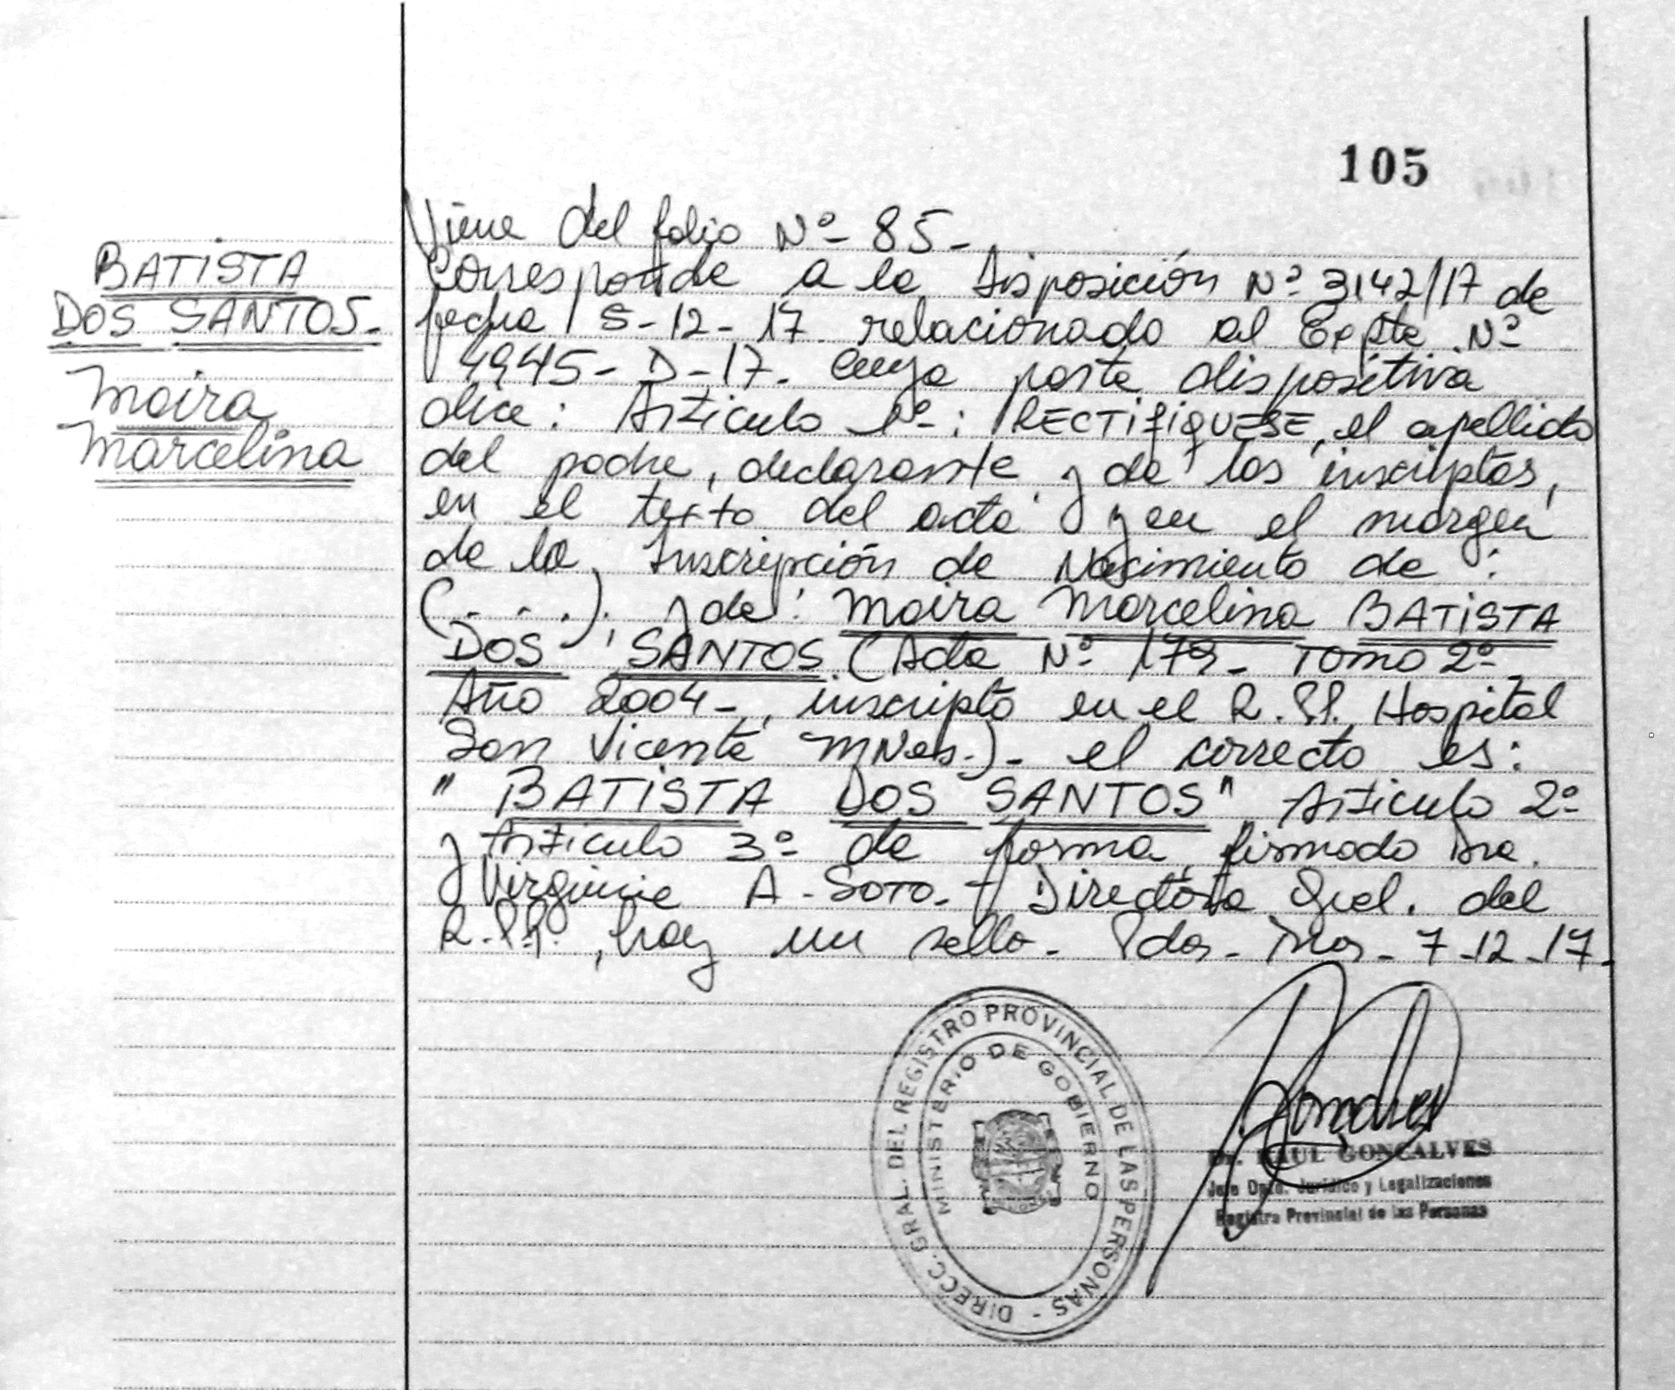 105
BATISTA
DOS SANTOS.
Maira
Marcelina
Viene del folio Nº 85-
Corresponde a la Disposición Nº 3142/17 de
fecha 5-12-17 relacionado al Expte Nº
4945-D-17- cuya parte dispositiva
dice: Artículo 1º-: RECTIFIQUESE, el apellido
del padre, declarante y de los inscriptos,
en el texto del acta y en el margen
de la Inscripción de Nacimiento de:
(....), y de: Maira Marcelina BATISTA
DOS SANTOS (Acta Nº 179- Tomo 2º-
Año 2004-, inscripto en el R.P.P. Hospital
San Vicente Mnes.)- el correcto es:
"BATISTA DOS SANTOS" Artículo 2º
y Artículo 3º de forma, firmado Dra.
Virginia A. Soto.- Directora Gral. del
R.P.P., hay un sello- Pdas- Mnes- 7-12-17.
DIRECC. GRAL. DEL REGISTRO PROVINCIAL DE LAS PERSONAS -
MINISTERIO DE GOBIERNO
Dr. RAUL GONCALVES
Jefe Dpto. Jurídico y Legalizaciones
Registro Provincial de las Personas